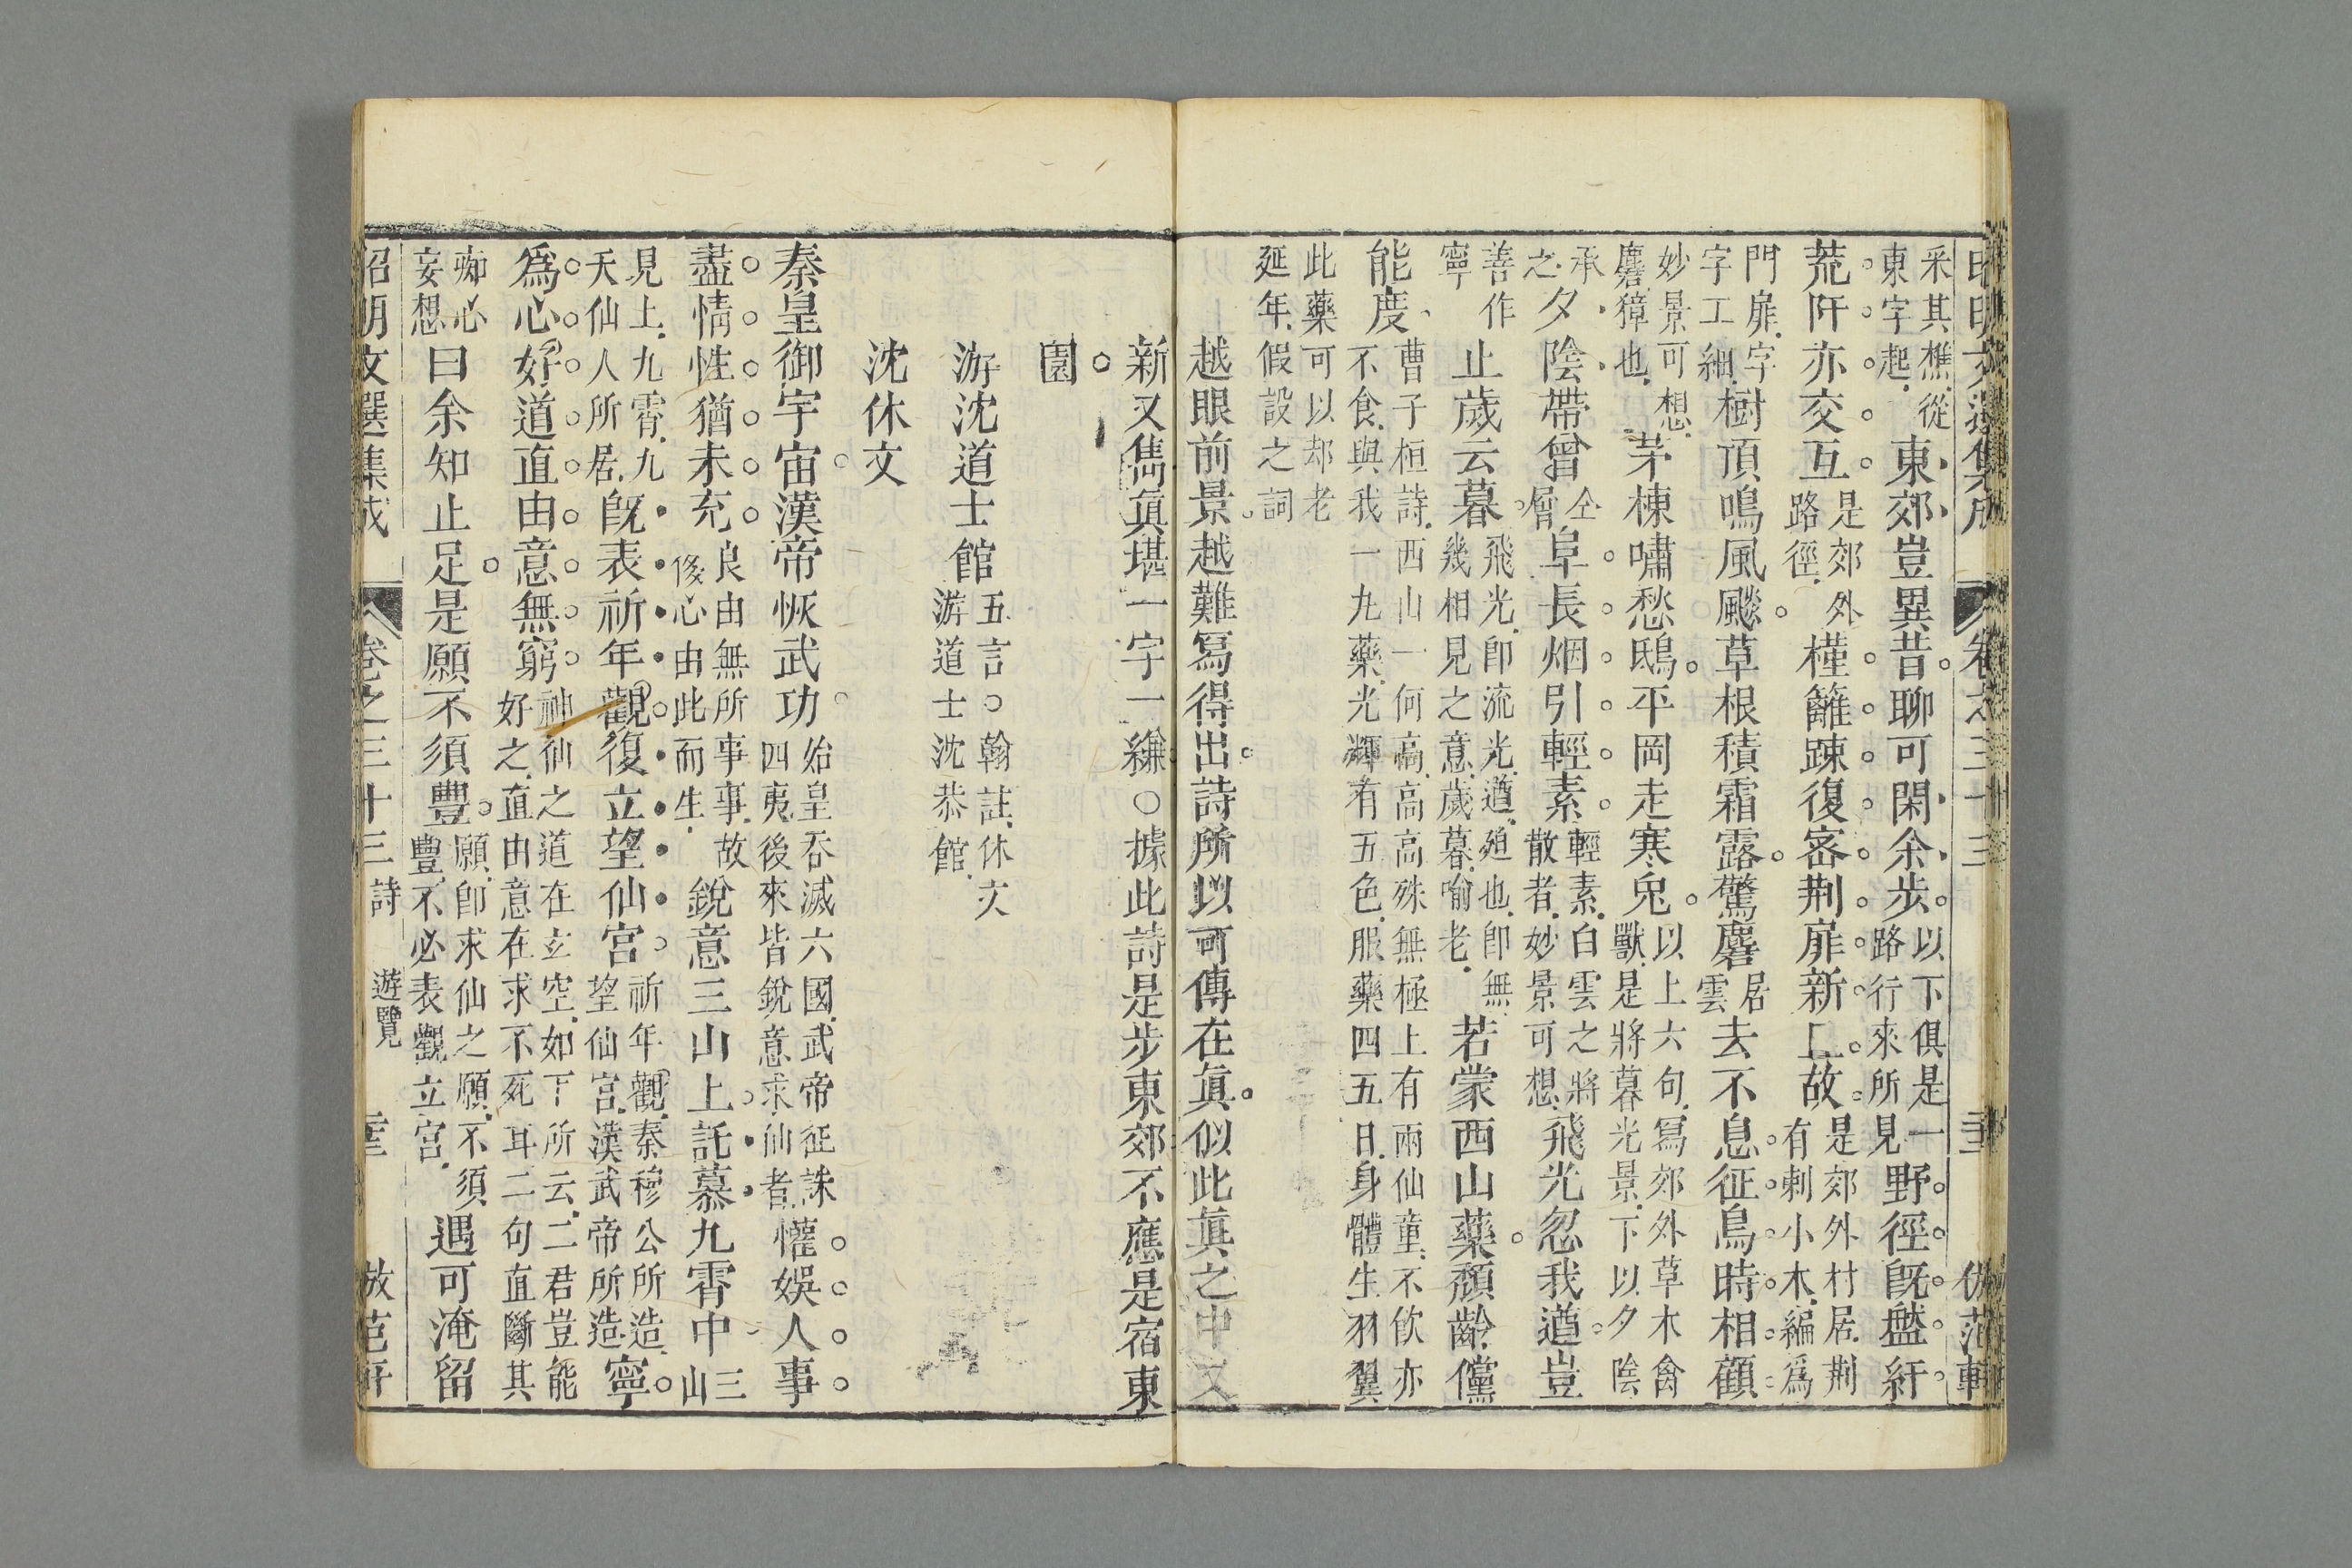 昭明文選集成 卷之三十三 仿范軒
采其樵從
東字起
東郊豈異昔聊可閑余步
以下俱是一
路行來所見
野徑旣盤紆
荒阡亦交互
是郊外
路徑
槿籬疎復密荆扉新且故
是郊外村居荆
有刺小木編爲
門扉字
字工細
樹頂鳴風飈草根積霜露驚麏
居
雲
去不息征鳥時相顧
妙景可想
麏獐也
茅棟嘯愁鴟平岡走寒兔
以上六句寫郊外草木禽
獸是將暮光景下以夕陰
承
之
夕陰帶曾
仝
層
阜長烟引輕素
輕素白雲之將
散者妙景可想
飛光忽我遒豈
善作
寧
止歲云暮
飛光卽流光遒廹也卽無
幾相見之意歲暮喻老
若蒙西山藥頹齡儻
能度
曹子桓詩西山一何高高高殊無極上有兩仙童不飲亦
不食與我一九藥光輝有五色服藥四五日身體生羽翼
此藥可以却老
延年假設之詞
越眼前景越難寫得出詩所以可傳在眞似此眞之中又
新又雋眞堪一字一縑○據此詩是步東郊不應是宿東
園
游沈道士館
五言○翰註休文
游道士沈恭館
沈休文
秦皇御宇宙漢帝恢武功
始皇吞滅六國武帝征誅
四夷後來皆銳意求仙者
懽娛人事
盡情性猶未充
良由無所事事故
侈心由此而生
銳意三山上託慕九霄中
三
山
見上九霄九
天仙人所居
旣表祈年觀復立望仙宮
祈年觀秦穆公所造
望仙宮漢武帝所造
寧
爲心好道直由意無窮
神仙之道在玄空如下所云二君豈能
好之直由意在求不死耳二句直斷其
痴心
妄想
曰余知止足是願不須豐
願卽求仙之願不須
豐不必表觀立宮
遇可淹留
昭明文選集成 卷之三十三 詩 遊覽 仿范軒